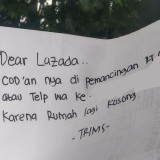 Dear Lazada..
COD'an nya di Pemancingan
atau Telp wa ke.
Karena Rumah lagi Kosong
-TRIMS-